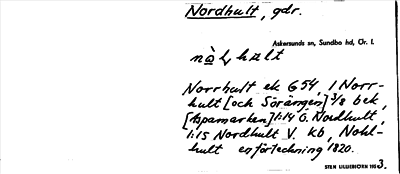 Nordhult, gdr.
Askersunds sn, Sundbo hd, Ör. l.
Norrhult ek G 54, 1 Norr-
hult [och Sörängen] 3/8 bek,
[Aspamarken] 1:14 Ö. Nordhult,
1:15 Nordhult V. kb, Nohl-
hult enl förteckning 1820.
STEN LILLIEBJÖRN 1953.